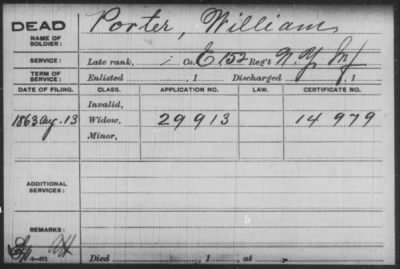 DEAD Porter, William
NAME OF
SOLDIER:
SERVICE: Late rank, Co. E 152 Reg't N. Y. Inf
TERM OF
SERVICE: Enlisted , 1 Discharged , 1
DATE OF FILING. CLASS. APPLICATION NO. LAW. CERTIFICATE NO.
Invalid,
1863 Aug. 13 Widow, 29913 14979
Minor,
ADDITIONAL
SERVICES:
REMARKS:
Died , 1 , at